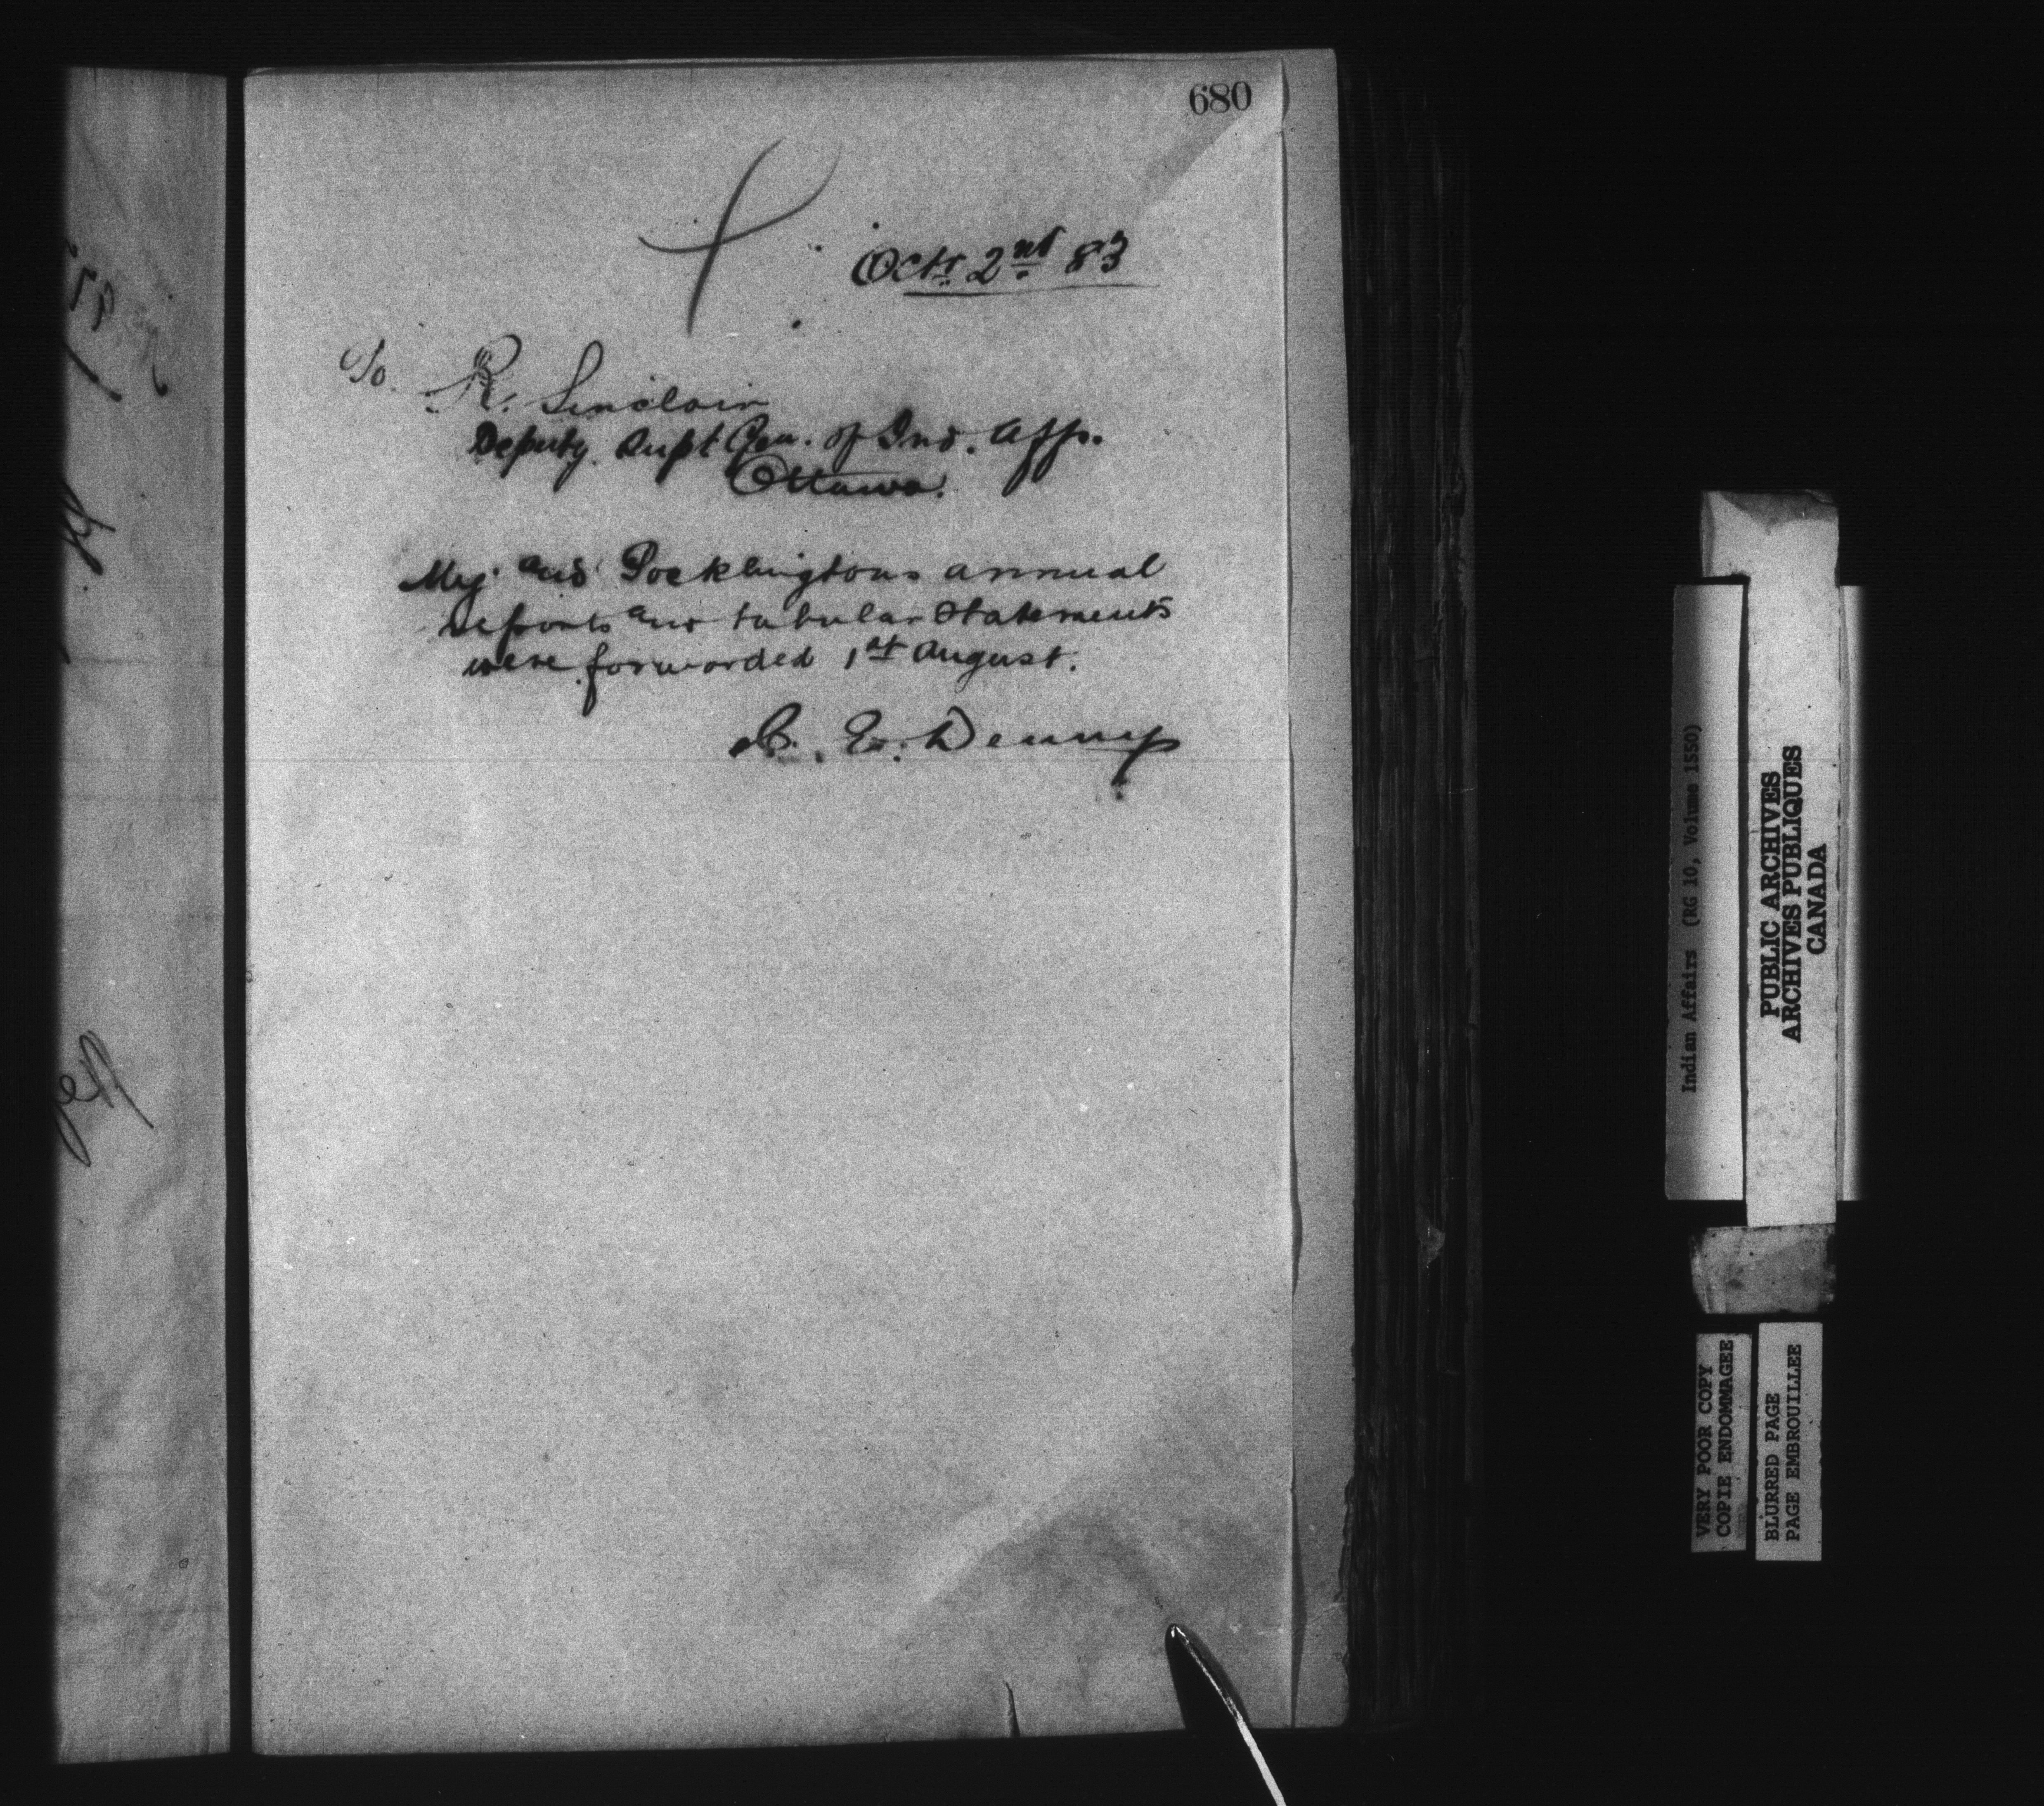 680
Octr. 2nd 83
To. R. Sinclair
Deputy Supt Gen. of Ind. Affs.
Ottawa.
My and Pocklingtons annual
reports and tabular statements
were forwarded 1st August.
C. E. Denny
Indian Affairs (RG 10, Volume 1550)
PUBLIC ARCHIVES
ARCHIVES PUBLIQUES
CANADA
VERY POOR COPY
COPIE ENDOMMAGEE
BLURRED PAGE
PAGE EMBROUILLEE